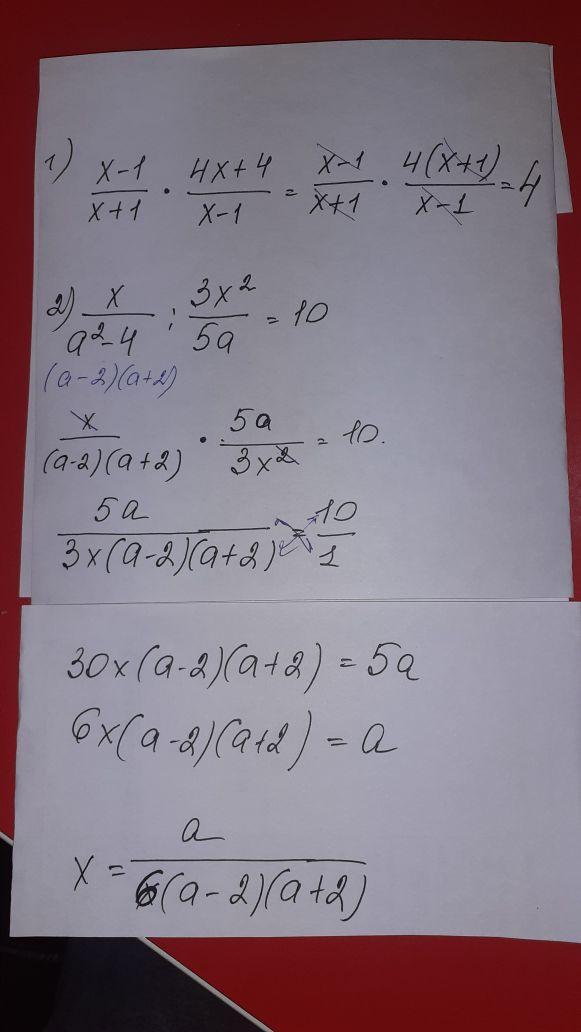 1) (x-1)/(x+1) · (4x+4)/(x-1) = (x-1)/(x+1) · 4(x+1)/(x-1) = 4
2) x/(a²-4) : 3x²/5a = 10
(a-2)(a+2)
x/((a-2)(a+2)) · 5a/3x² = 10.
5a/(3x(a-2)(a+2)) = 10/1
30x(a-2)(a+2) = 5a
6x(a-2)(a+2) = a
x = a/(6(a-2)(a+2))